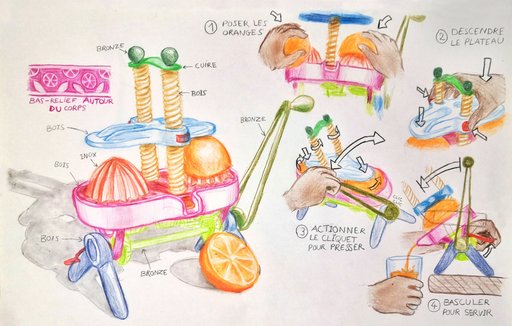 BRONZE
CUIRE
BOIS
BAS-RELIEF AUTOUR
DU CORPS
BOIS
INOX
BOIS
BOIS
BRONZE
BRONZE
1 POSER LES
ORANGES
2 DESCENDRE
LE PLATEAU
3 ACTIONNER
LE CLIQUET
POUR PRESSER
4 BASCULER
POUR SERVIR